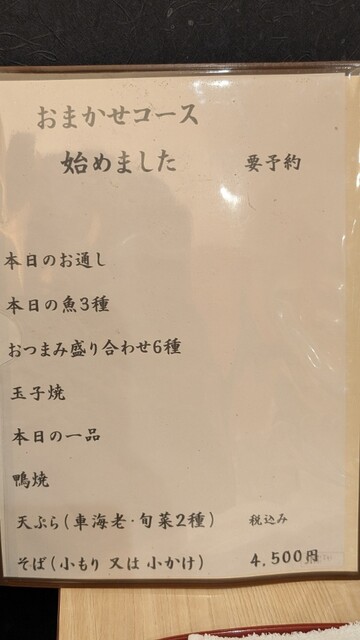 おまかせコース
始めました 要予約
本日のお通し
本日の魚3種
おつまみ盛り合わせ6種
玉子焼
本日の一品
鴨焼
天ぷら(車海老・旬菜2種) 税込み
そば(小もり 又は 小かけ) 4,500円